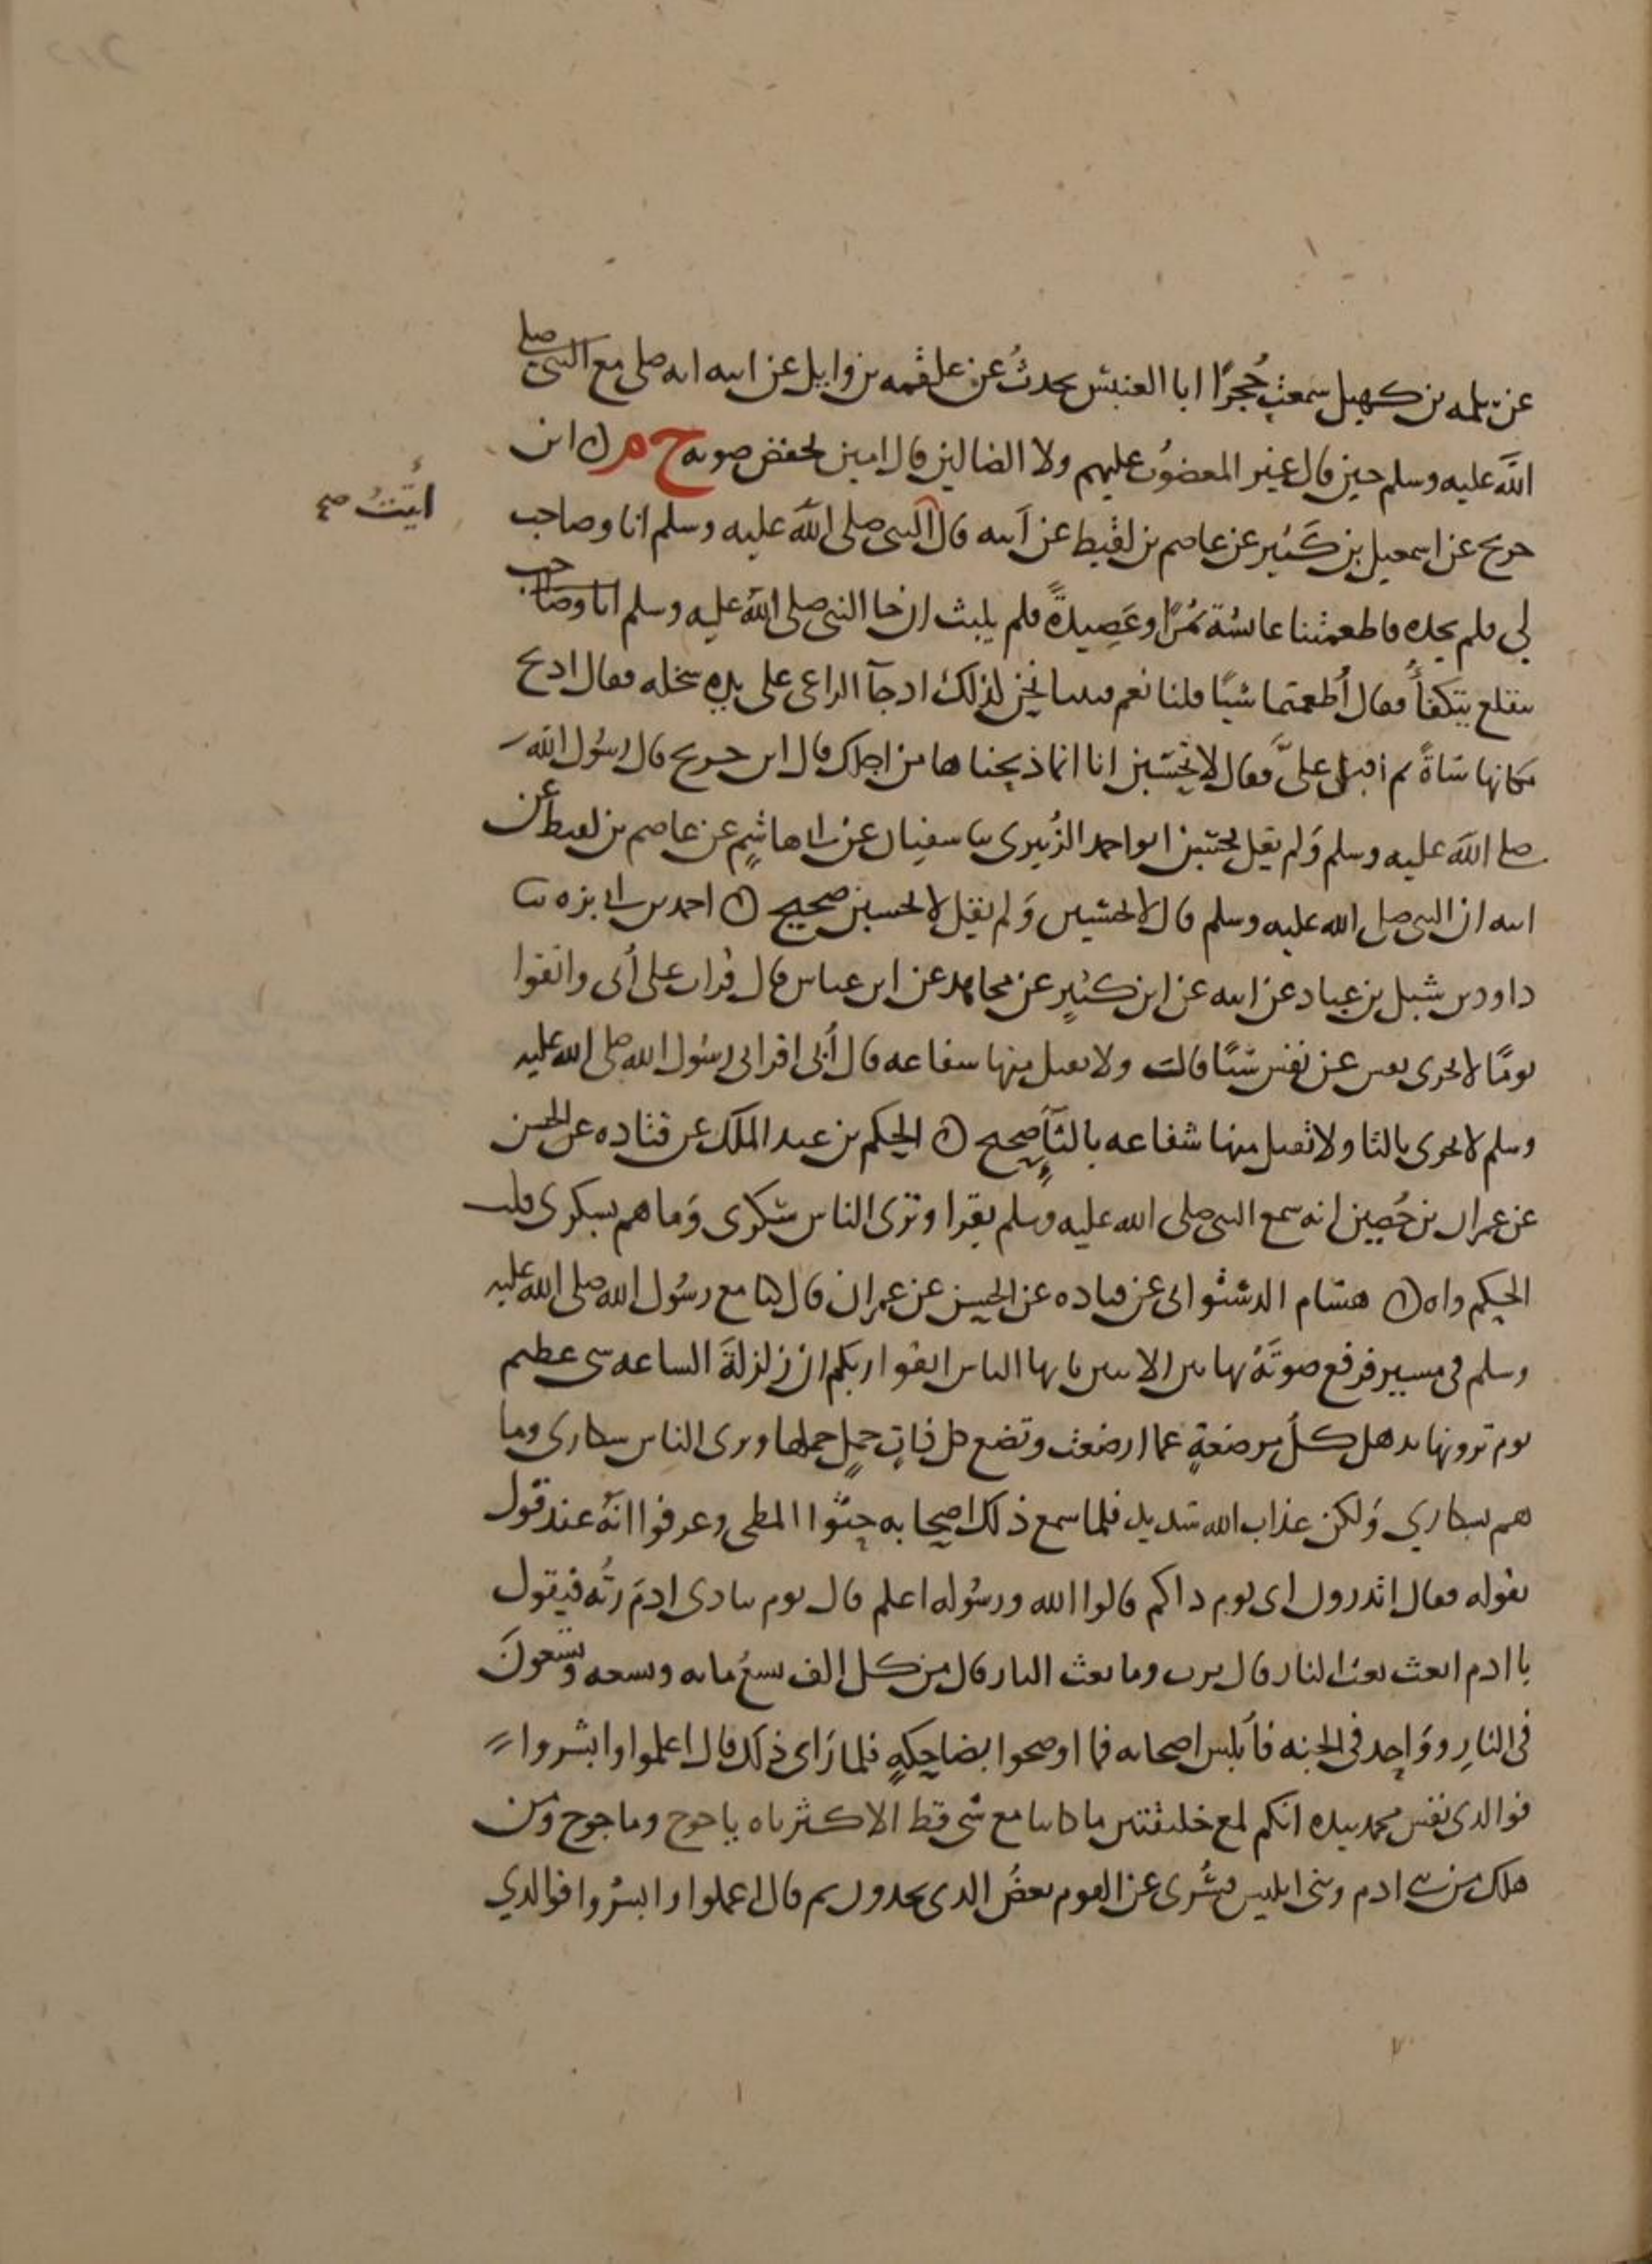 عن سلمه بن كهيل سمعت حُجرًا ابا العنبس يحدثُ عن علقمه بن وايل عن ابيه انه صلى مع النبي صلى
اللّه عليه وسلم حين قال غير المغضوُب عليهم ولا الضالين قال امين يخفض صوته خ م ابن
اتيتُ صح
جريج عن اسمعيل بن كَثير عن عاصم بن لقيط عن ابيه قال النبي صلى اللّه عليه وسلم انا وصاحب
لي فلم يجده فاطعمتنا عائشة تمرًا وعَصِيدةً فلم يلبث ان جا النبي صلى اللّه عليه وسلم انا وصاحب
يتقلع يتكفأُ فقال أُطعمتما شيًا قلنا نعم فبينا نحن لذلك اد جآ الراعى على يده سخله فقال ادبح
مكانها شاةً ثم اقبل علىَّ فقال لا تحسبن انا انما ذبحناها من اجلك قال ابن جريج قال رسُول اللّه
صلى اللّه عليه وسلم وَلم يقل تحسبن ابو احمد الزُبيرى سا سفيان عن ابى هاشمٍ عن عاصم بن لقيط عن
ابيه ان النبي صلى اللّه عليه وسلم قال لا تحسبن وَلم يقل لا تحسبن صحيح احمد بن ابى بزه سا
داود بن شبل بن عباد عن ابيه عن ابن كثيرٍ عن مجاهد عن ابن عباس قال قرات على أُبى واتقوا
يومًا لا تجرى نفس عن نفس شيًا قالت ولا يقبل منها شفاعه قال أُبى اقرانى رسُول اللّه صلى اللّه عليه
وسلم لا تجزى بالتا ولا تقبل منها شفاعه بالتآِ صحيح الحكم بن عبد الملك عن قتاده عن الحسن
عن عمران بن حُصين انه سمع النبي صلى اللّه عليه وسلم يقرا وترى الناس سكرى وَما هم بسكرى قلت
الحكم واه هشام الدستوائى عن قتاده عن الحسن عن عمران قال كنا مع رسُول اللّه صلى اللّه عليه
وسلم فى مسير فرفع صوتَهُ بهاتين الايتين يايها الناس اتقوا ربكم ان زلزلةَ الساعه شى عظيم
يوم ترونها تدهل كلُ مرضعةٍ عما ارضعت وتضع كل ذاتِ حملٍ حملها وترى الناس سكارى وما
هم بسكاري وَلكن عذاب اللّه شديد فلما سمع ذلك اصحابه حثوا المطى وعرفوا انهُ عند قول
يقوله فقال اتدرون اى يوم داكم قالوا اللّه ورسُوله اعلم قال يوم ينادى ادمَ ربُه فيقول
يا ادم ابعث بعث النار قال يرب وما بعث النار قال من كل الف تسعُ مايه وتسعه وتسعونَ
فى النارِ ووَاحِد فى الجنه فأبلس اصحابه فما اوضحوا بضاحكهٍ فلما رَاى ذلك قال اعلموا وابشروا
فوالدى نفس محمد بيده انكم لمع خليقتين ما كانتا مع شى قط الا كثرتاه ياجوج وماجوج وَمن
هلك من بنى ادم وبنى ابليس فسُرى عن القوم بعضُ الدى يجدون ثم قال اعملوا وابشرُوا فوالذي